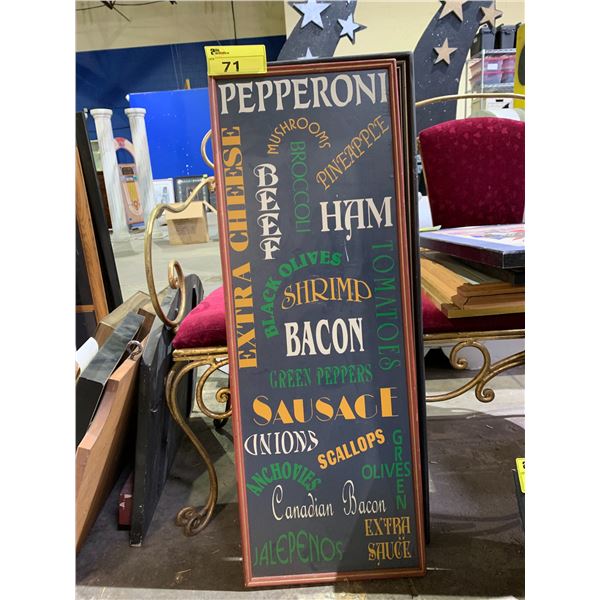 71
PEPPERONI
MUSHROOMS
PINEAPPLE
BROCCOLI
BEEF
EXTRA CHEESE
HAM
TOMATOES
BLACK OLIVES
SHRIMP
BACON
GREEN PEPPERS
SAUSAGE
ONIONS
SCALLOPS
GREEN
OLIVES
ANCHOVIES
Canadian Bacon
EXTRA
SAUCE
JALEPENOS